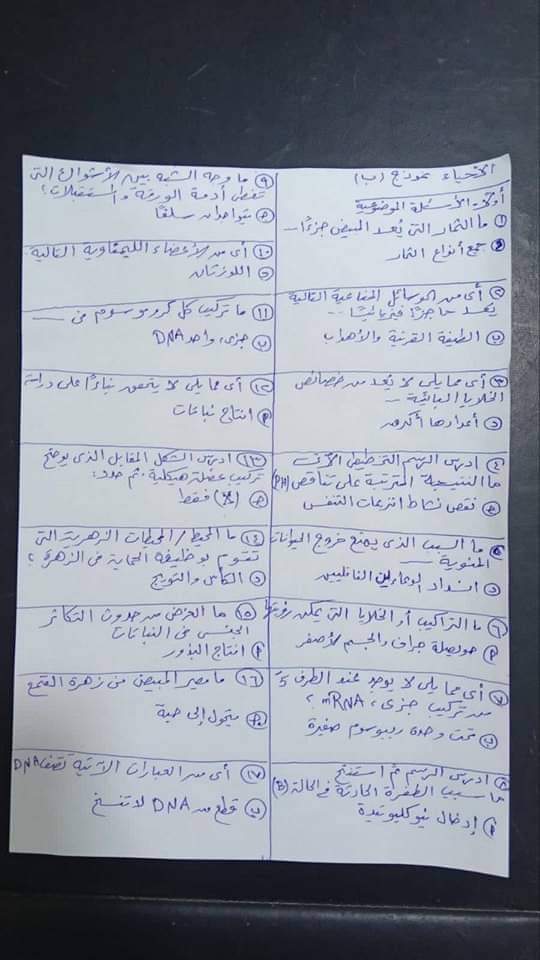 الأحياء نموذج (ب)
أولاً: الأسئلة الموضوعية
① ما الثمار التي يُعد المبيض جزءًا ...
جميع أنواع الثمار
② أى من الوسائل المناعية التالية
يُعد حاجزًا فيزيائيًا ...
الطبقة القرنية والأهداب
③ أى مما يلى لا يُعد من خصائص
الخلايا البائية ...
د أعدادها أكبر
④ ادرس الرسم التخطيطى الآتى
ما النتيجة المترتبة على تناقص (PH)
نقص نشاط إنزيمات التنفس
ما السبب الذى يمنع خروج الحيوانات
المنوية ...
د انسداد الوعاءين الناقلين
⑥ ما التراكيب أو الخلايا التى يمكن رؤيتها
حويصلة جراف والجسم الأصفر
⑦ أى مما يلى لا يوجد عند الطرف 5
من تركيب جزىء mRNA ؟
ب تحت وحدة ريبوسوم صغيرة
⑧ ادرس الرسم ثم استنتج
ما سبب الطفرة الحادثة فى الحالة (B)
أ إدخال نيوكليوتيدة
⑨ ما وجه الشبه بين الأشواك التى
تغطى أدمة الورقة و المستقبلات ؟
يتواجدان سلفًا
⑩ أى من الأعضاء الليمفاوية التالية
د اللوزتان
⑪ ما تركيب كل كروموسوم فى ـــ
ب جزىء واحد DNA
⑫ أى مما يلى لا يتحقق بناءًا على دراسة
أ إنتاج نباتات
⑬ ادرس الشكل المقابل الذى يوضح
تركيب عضلة هيكلية ثم حدد:
(X) فقط
⑭ ما المحيط / المحيطات الزهرية التى
تقوم بوظيفة الحماية فى الزهرة ؟
د الكأس والتويج
⑮ ما الغرض من حدوث التكاثر
الجنسى فى النباتات
أ إنتاج البذور
⑯ ما مصير المبيض من زهرة القمح
يتحول إلى حبة
⑰ أى من العبارات الآتية تصف DNA
قطع من DNA لا تنسخ